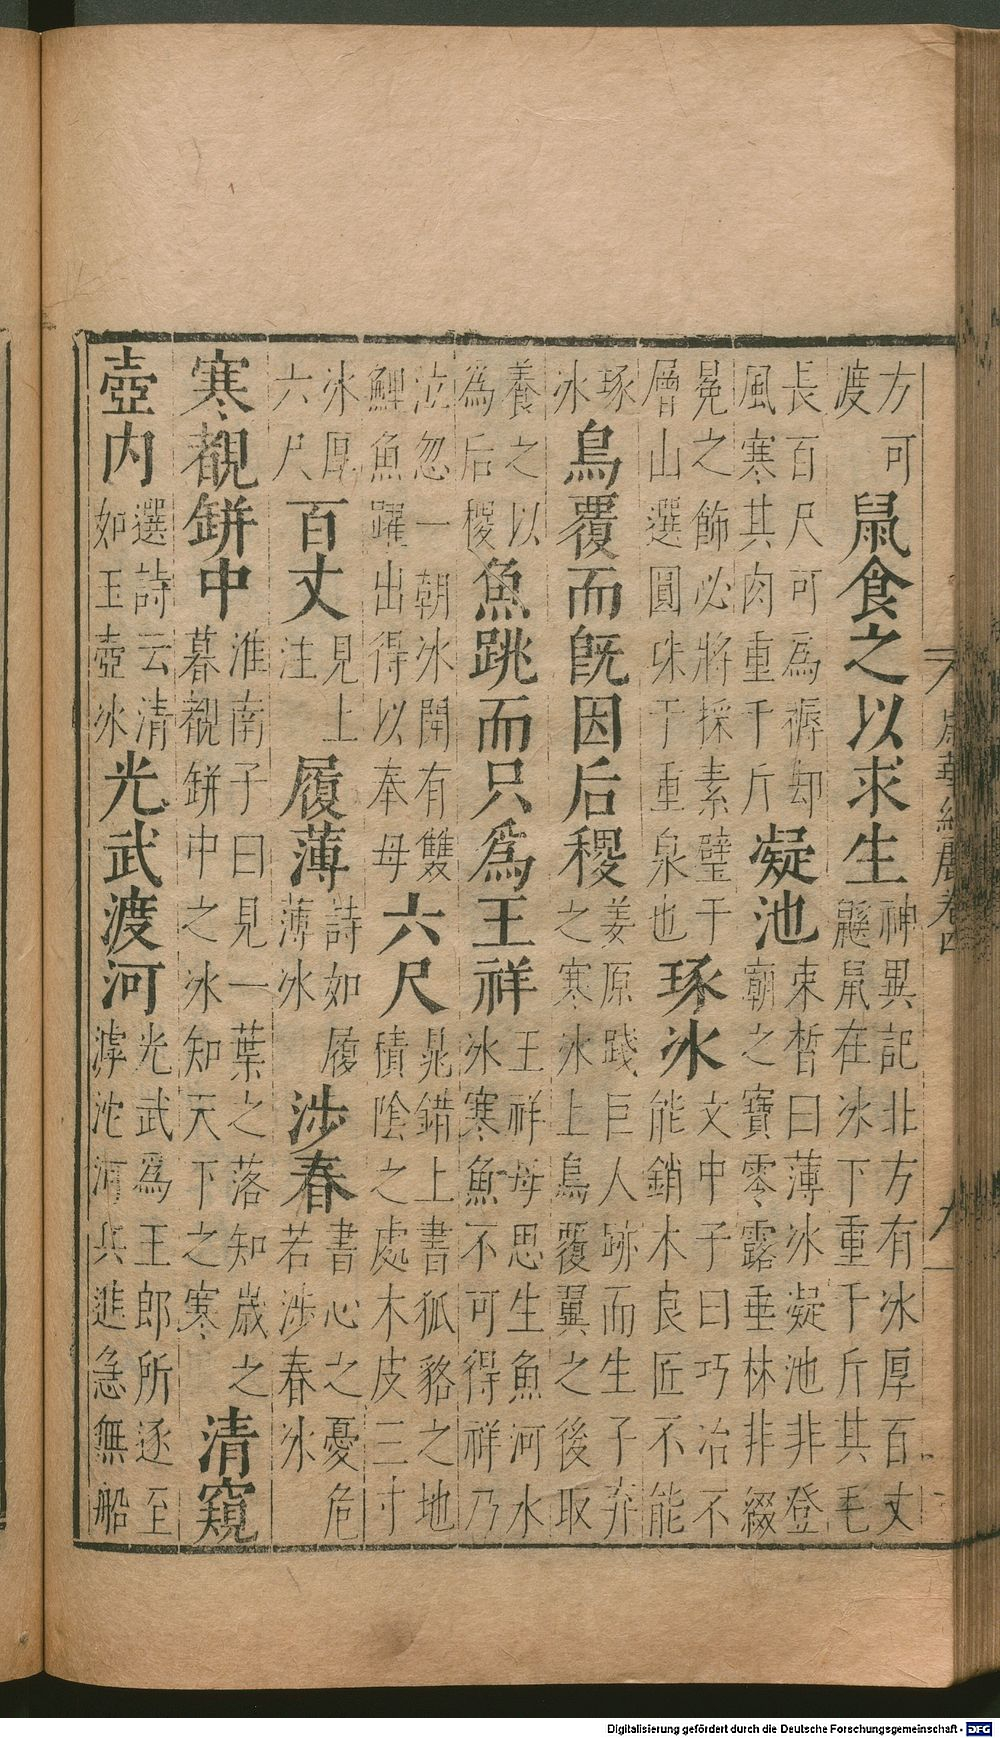 方可渡鼠食之以求生神異記北方有冰厚百丈鼷鼠在冰下重千斤其毛
長百尺可爲褥却風寒其肉重千斤凝池束晳曰薄冰凝池非登廟之寶零露垂林非綴
冕之飾必將採素璧于層山選圓珠于重泉也琢冰文中子曰巧冶不能銷木良匠不能
琢冰鳥覆而旣因后稷姜原踐巨人跡而生子弃之寒冰上鳥覆翼之後取
養之以爲后稷魚跳而只爲王祥王祥母思生魚河水冰寒魚不可得祥乃
泣忽一朝冰開有雙鯉魚躍出得以奉母六尺晁錯上書狐貉之地積陰之處木皮三寸
冰厚六尺百丈見上注履薄詩如履薄冰涉春書心之憂危若涉春冰
寒覩缾中淮南子曰見一葉之落知歲之暮覩缾中之冰知天下之寒清窺
壺内選詩云清如玉壺冰光武渡河光武爲王郎所逐至滹沱河兵進急無船
歲華紀麗卷四 九
Digitalisierung gefördert durch die Deutsche Forschungsgemeinschaft - DFG